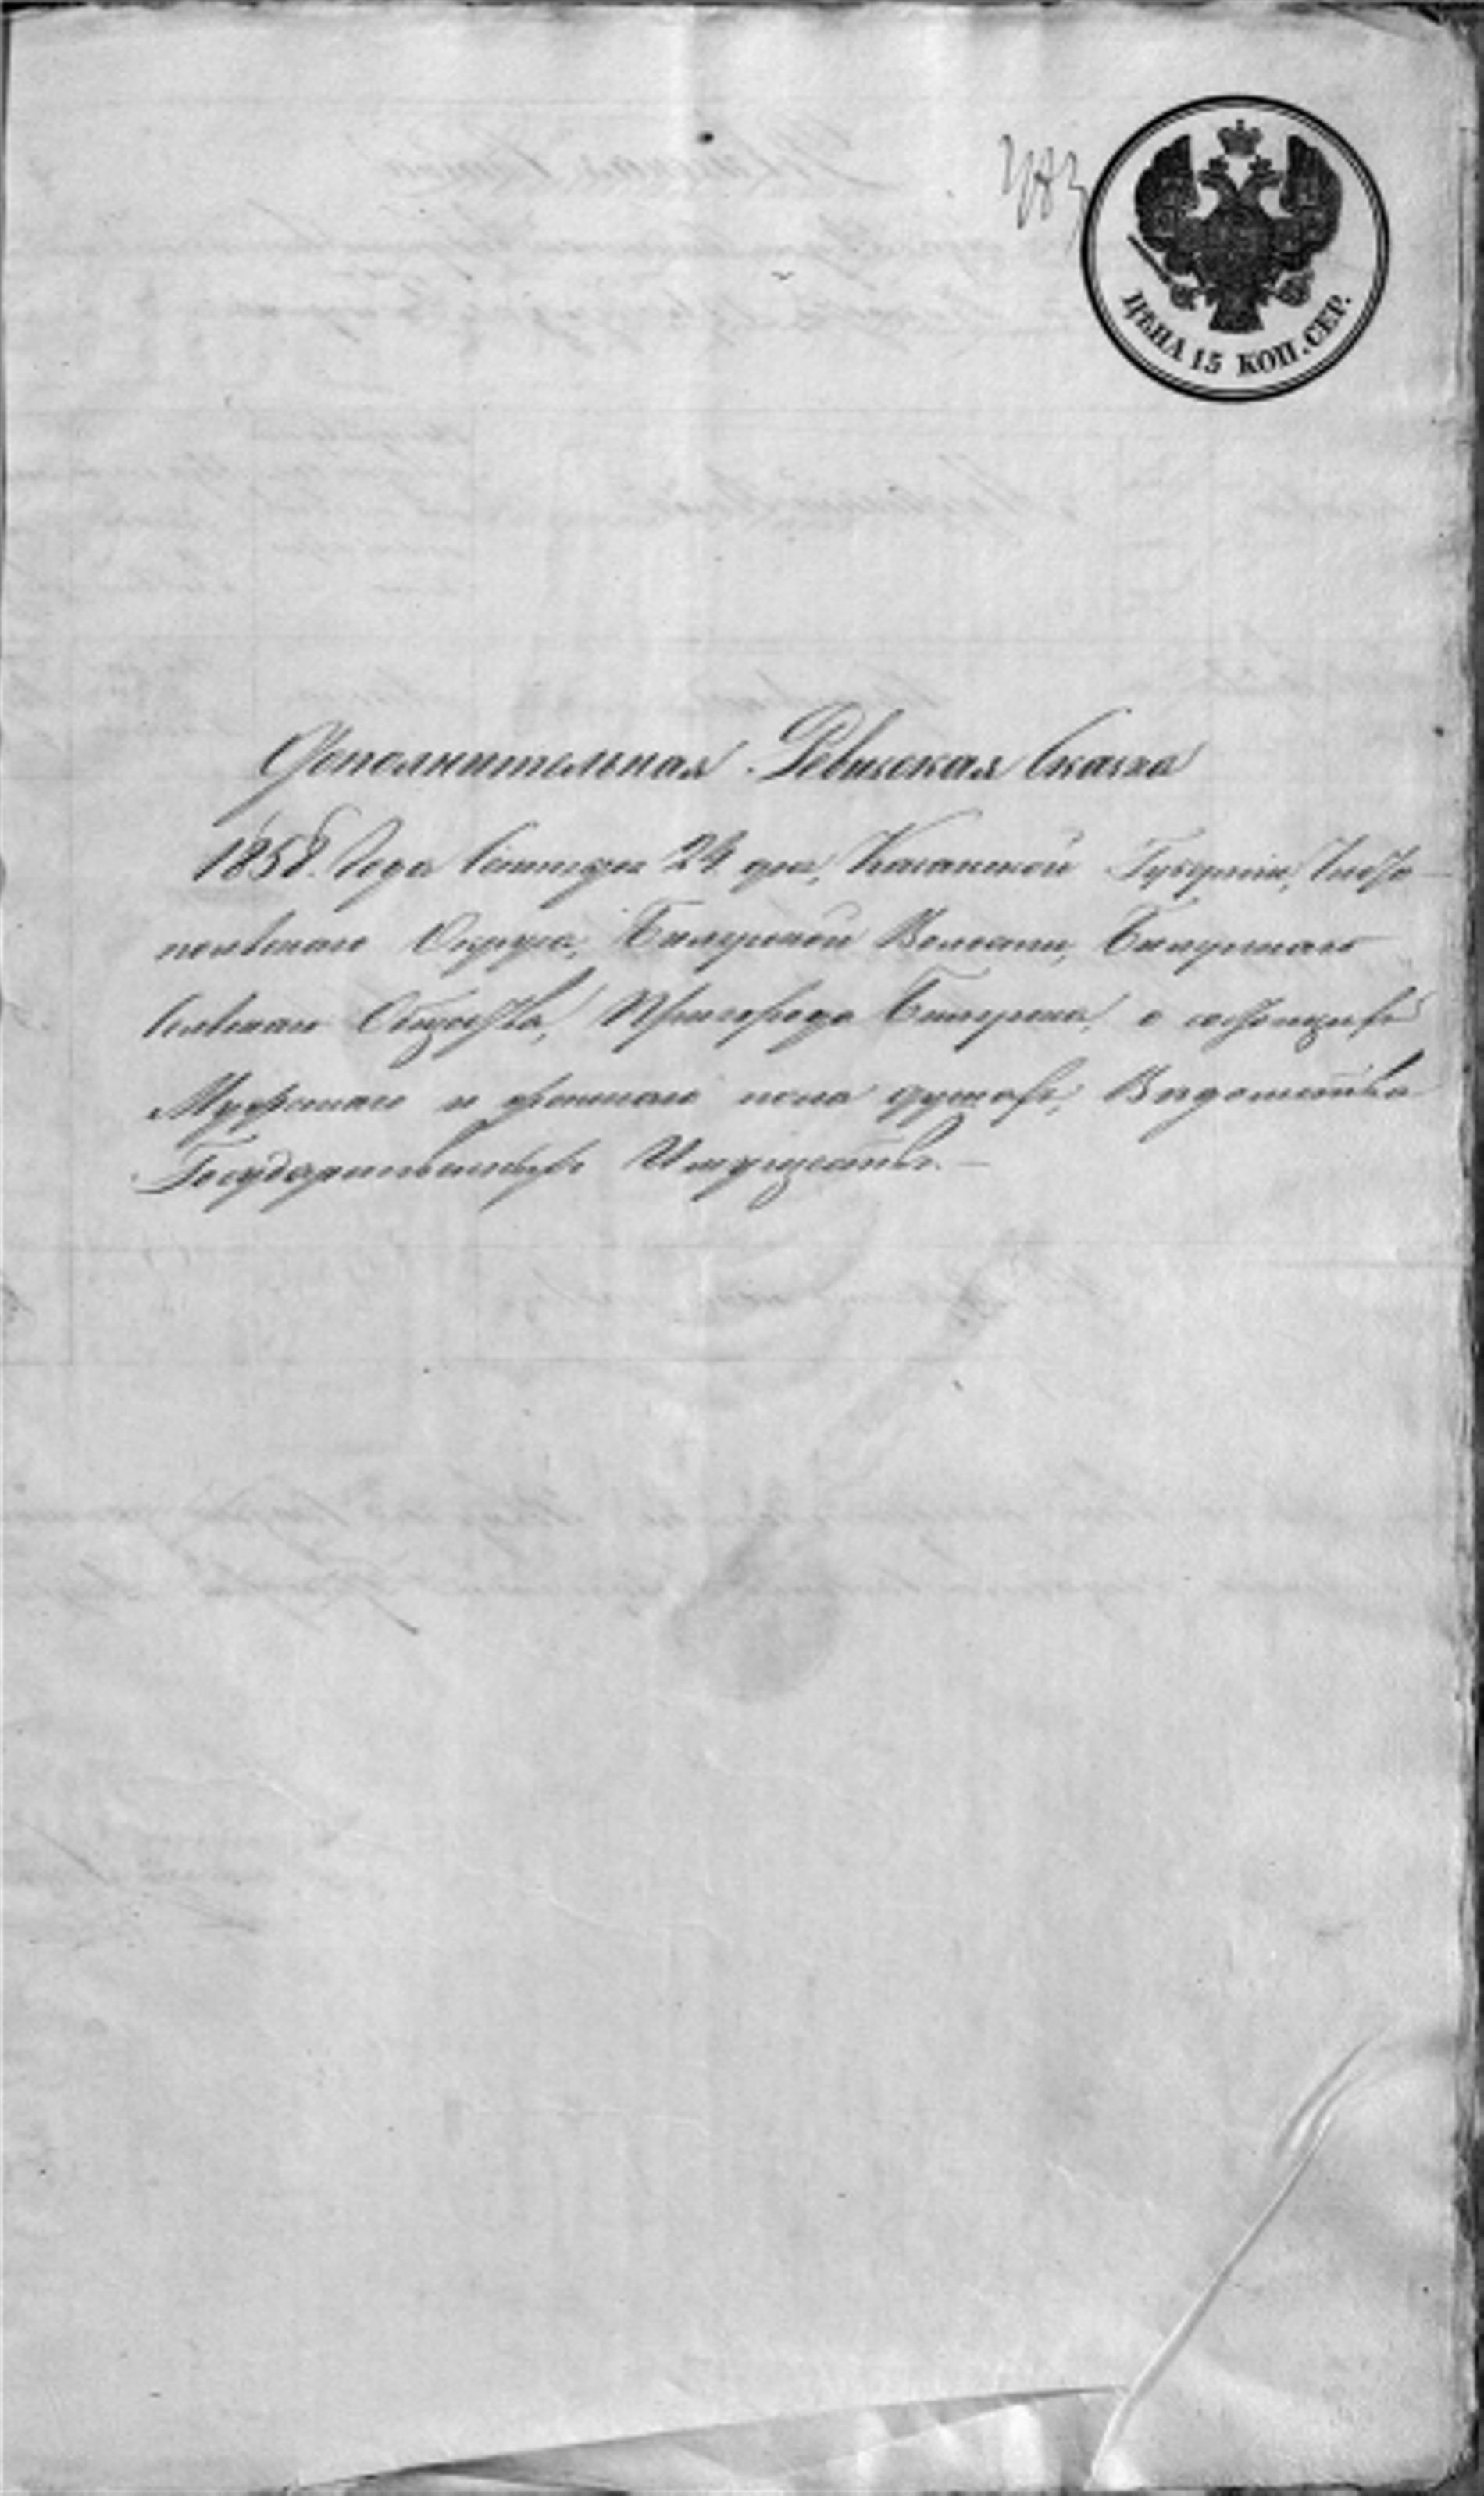 ЦѢНА 15 КОП. СЕР.
Дополнительная Ревизская Сказка
1858. Года Сентября 24 дня, Казанской Губерніи, Чисто-
польскаго Округа, Билярской Волости, Билярскаго
Сельскаго Общества, Пригорода Билярска, о состоящихъ
Мужскаго и женскаго пола душахъ, Вѣдомства
Государственныхъ Имуществъ.—